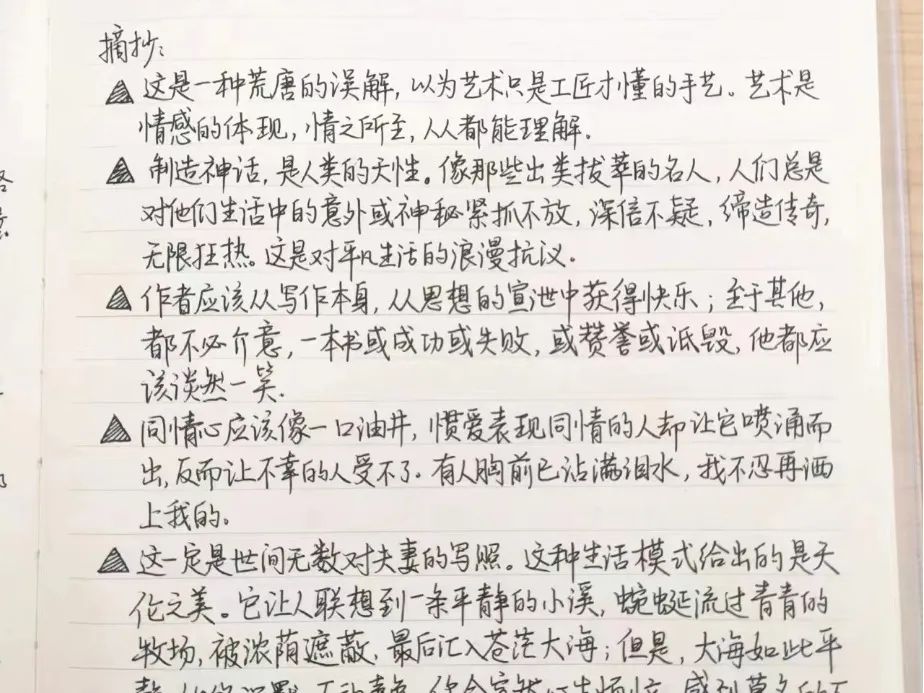 摘抄:
这是一种荒唐的误解,以为艺术只是工匠才懂的手艺。艺术是
情感的体现,情之所至,人人都能理解.
制造神话,是人类的天性。像那些出类拔萃的名人,人们总是
对他们生活中的意外或神秘紧抓不放,深信不疑,缔造传奇,
无限狂热。这是对平凡生活的浪漫抗议.
作者应该从写作本身,从思想的宣泄中获得快乐;至于其他,
都不必介意,一本书或成功或失败,或赞誉或诋毁,他都应
该淡然一笑.
同情心应该像一口油井,惯爱表现同情的人却让它喷涌而
出,反而让不幸的人受不了.有人胸前已沾满泪水,我不忍再洒
上我的。
这一定是世间无数对夫妻的写照。这种生活模式给出的是天
伦之美。它让人联想到一条平静的小溪,蜿蜒流过青青的
牧场,被浓荫遮蔽,最后汇入苍茫大海;但是,大海如此平